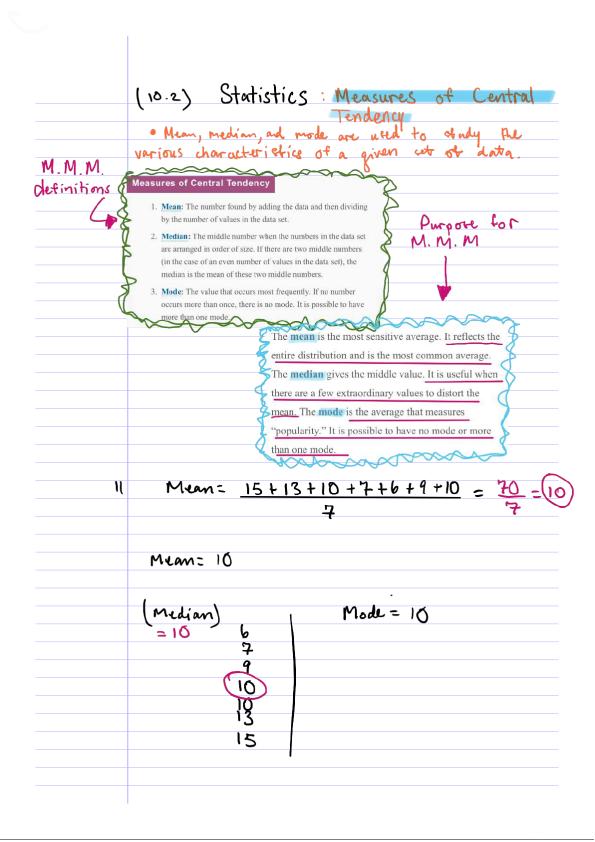 (10.2) Statistics : Measures of Central
Tendency
• Mean, median, ad mode are used to study the
various characteristics of a given set of data.
M.M.M.
definitions
Measures of Central Tendency
1. Mean: The number found by adding the data and then dividing
by the number of values in the data set.
2. Median: The middle number when the numbers in the data set
are arranged in order of size. If there are two middle numbers
(in the case of an even number of values in the data set), the
median is the mean of these two middle numbers.
3. Mode: The value that occurs most frequently. If no number
occurs more than once, there is no mode. It is possible to have
more than one mode.
Purpose for
M.M.M
The mean is the most sensitive average. It reflects the
entire distribution and is the most common average.
The median gives the middle value. It is useful when
there are a few extraordinary values to distort the
mean. The mode is the average that measures
“popularity.” It is possible to have no mode or more
than one mode.
11 Mean = 15+13+10+7+6+9+10 = 70 = 10
7 7
Mean = 10
(Median) Mode = 10
= 10 6
7
9
10
10
13
15